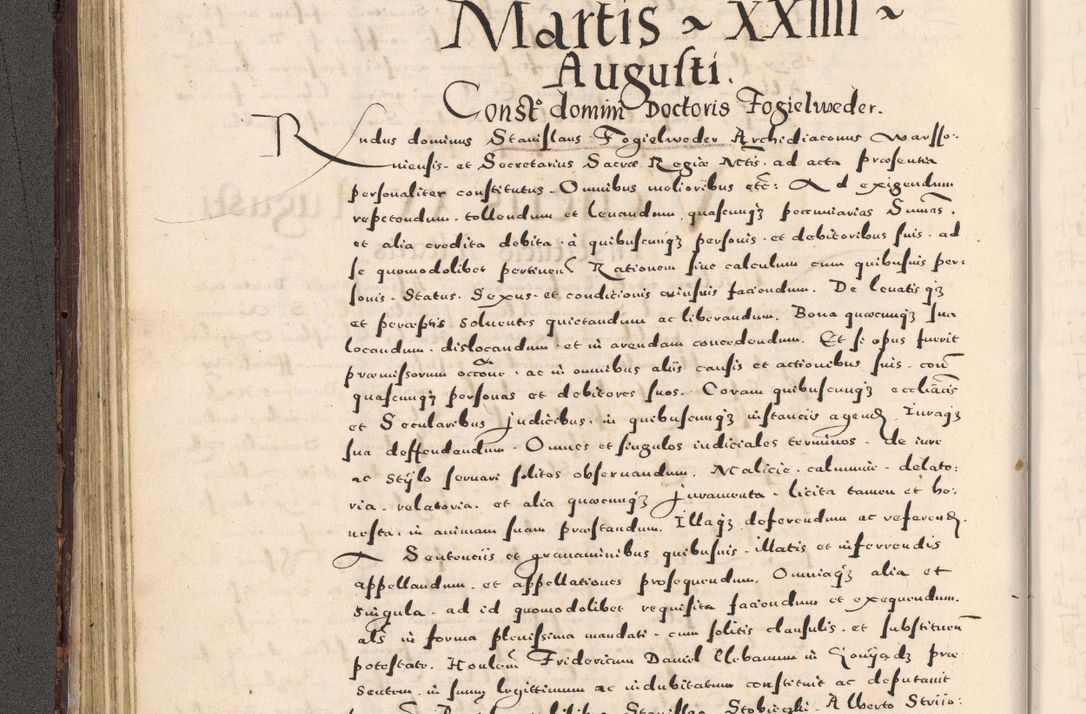 Martis ~ XXIIII ~
Augusti.
Constº domini Doctoris Fogielweder.
Rndus dominus Stanislaus Fogielweder Archidiaconus Warsso:
niensis et Secretarius Sacræ Regiæ Mtis. ad acta præsentia
personaliter constitutus. Omnibus melioribus etc: Ad exigendum
repetendum. tollendum et leuandum, quascunqz pecuniarias Summas.
et alia credita debita. à quibuscunqz personis. et debitoribus suis. ad
se quomodolibet pertinen Rationem siue calculum cum quibusuis per:
sonis. Status. Sexus. et conditionis cuiusuis faciendum. De leuatis qz
et perceptis soluentes quietandum ac liberandum. Bona quæcunqz sua
locandum. dislocandum. et in arendam concedendum. Et si opus fuerit
præmissorum occone. ac in omnibus aliis causis et actionibus suis. con
quascunqz personas et debitores suos. Coram quibuscunqz eccliacis
et Secularibus judicibus. in quibuscunqz instanciis agend. Iuraqz
sua deffendendum. Omnes et singulos iudiciales terminos. de iure
ac stylo seruari solitos obseruandum. Malicie. calumnie. delato:
ria. relatoria. et alia quæcunqz juramenta. licita tamen et ho:
nesta. in animam suam præstandum. Illaqz deferendum ac referend.
A Sententiis et grauaminibus quibusuis. illatis et inferrendis
appellandum. et appellationes prosequendum. Omniaqz alia et
singula. ad id quomodolibet requisita faciendum et exequendum.
als in forma plenissima mandati. cum solitis clausulis. et substituen
potestate. Honlem Fridericum Daniel Clebanum in præ
sentem. in suum legittimum ac indubitatum constituit ac deputauit
Stanislao Alberto